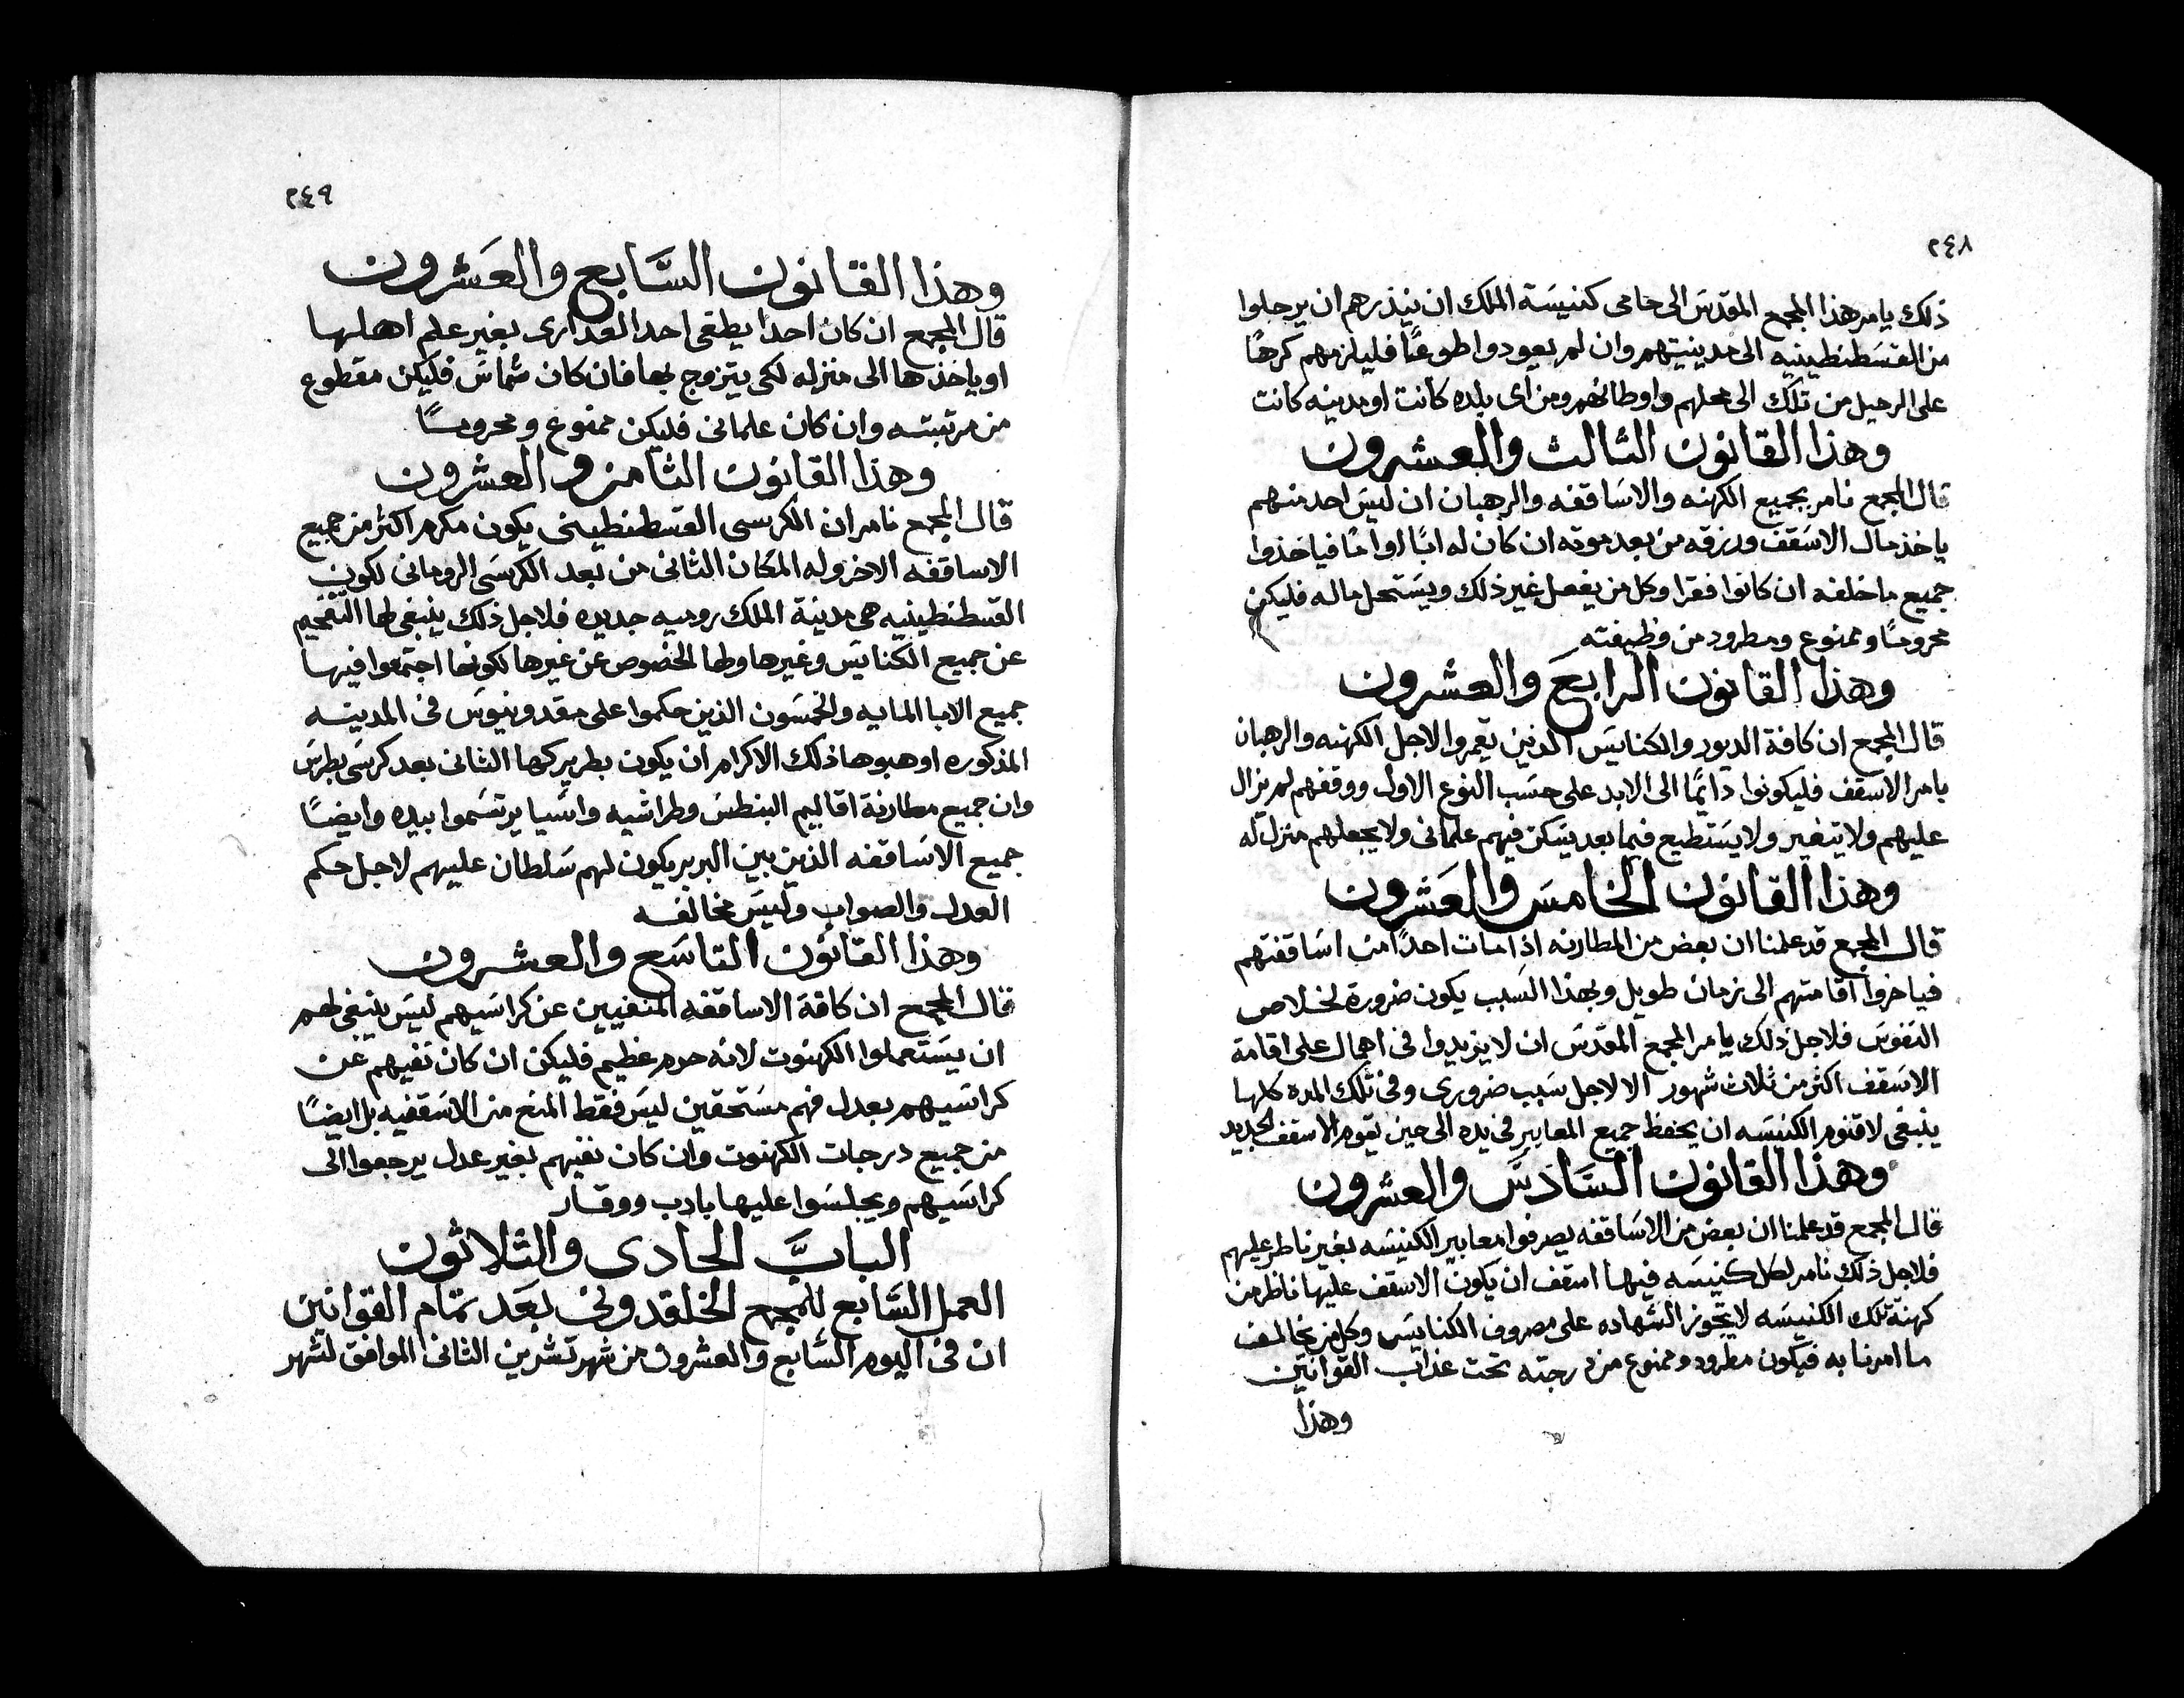 ٢٤٨
ذلك يامر هذا المجمع المقدس الى حامى كنيسة الملك ان ينذرهم ان يرحلوا
من القسطنطينيه الى مدينيتهم وان لم يعودوا طوعًا فليلزمهم كرهًا
على الرحيل من تلك الى محلهم واوطانهم ومن اى بلده كانت او مدينه كانت
وهذا القانون الثالث والعشرون
قال المجمع نامر بجميع الكهنه والاساقفه والرهبان ان ليس احد منهم
ياخذ مال الاسقف ورزقه من بعد موته ان كان له ابًا او امًا فياخذوا
جميع ما خلفه ان كانوا فقرا وكل من يفعل غير ذلك ويستحل ماله فليكن
محرومًا وممنوع ومطرود من وظيفته
وهذا القانون الرابع والعشرون
قال المجمع ان كافة الديور والكنايس الذين يعمروا لاجل الكهنه والرهبان
بامر الاسقف فليكونوا دايمًا الى الابد على حسب النوع الاول ووقفهم لم يزال
عليهم ولا يتغير ولا يستطيع فيما بعد يسكن فيهم علمانى ولا يجعلهم منزل له
وهذا القانون الخامس والعشرون
قال المجمع قد علمنا ان بعض من المطارنه اذا مات احدًا من اساقفتهم
فياخروا اقامتهم الى زمان طويل وبهذا السبب يكون ضرورة لخلاص
النفوس فلاجل ذلك يامر المجمع المقدس ان لا يزيدوا فى اهمال على اقامة
الاسقف اكثر من ثلاث شهور الا لاجل سبب ضرورى وفى تلك المده كلها
ينبغى لاقنوم الكنيسه ان يحفظ جميع المعابير فى يده الى حين يقوم الاسقف الجديد
وهذا القانون السادس والعشرون
قال المجمع قد علمنا ان بعض من الاساقفه يصرفوا معابير الكنيسه بغير ناظر عليهم
فلاجل ذلك نامر لكل كنيسه فيها اسقف ان يكون الاسقف عليها ناظر من
كهنة تلك الكنيسه لا تجوز الشهاده على مصروف الكنايس وكل من يخالف
ما امرنا به فيكون مطرود وممنوع من درجته تحت عذاب القوانين
وهذا
٢٤٩
وهذا القانون السابع والعشرون
قال المجمع ان كان احدًا يطغى احد العدارى بغير علم اهلها
او ياخذها الى منزله لكى يتزوج بها فان كان شماس فليكن مقطوع
من مرتبته وان كان علمانى فليكن ممنوع ومحرومًا
وهذا القانون الثامن والعشرون
قال المجمع نامر ان الكرسى القسطنطينى يكون مكرم اكثر من جميع
الاساقفه الاخر وله المكان الثانى من بعد الكرسى الرومانى لكون
القسطنطينيه هى مدينة الملك روميه جديده فلاجل ذلك ينبغى لها التفخيم
عن جميع الكنايس وغيرها ولها الخصوص عن غيرها لكونها اجتمعوا فيها
جميع الابا المايه والخمسون الذين حكموا على مقدونيوس فى المدينه
المذكوره اوهبوها ذلك الاكرام ان يكون بطريركها الثانى بعد كرسى بطرس
وان جميع مطارنة اقاليم البنطس وطراشيه واسيا يرتسموا بيده وايضًا
جميع الاساقفه الذين بين البربر يكون لهم سلطان عليهم لاجل حكم
العدل والصواب وليس مخالفه
وهذا القانون التاسع والعشرون
قال المجمع ان كافة الاساقفه المنفيين عن كراسيهم ليس ينبغى لهم
ان يستعملوا الكهنوت لانه حرم عظيم فليكن ان كان نفيهم عن
كراسيهم بعدل فهم مستحقين ليس فقط المنع من الاسقفيه بل ايضًا
من جميع درجات الكهنوت وان كان نفيهم بغير عدل يرجعوا الى
كراسيهم ويجلسوا عليها بادب ووقار
الباب الحادى والثلاثون
العمل السابع للمجمع الخلقدونى بعد تمام القوانين
ان فى اليوم السابع والعشرون من شهر تشرين الثانى الموافق لشهر